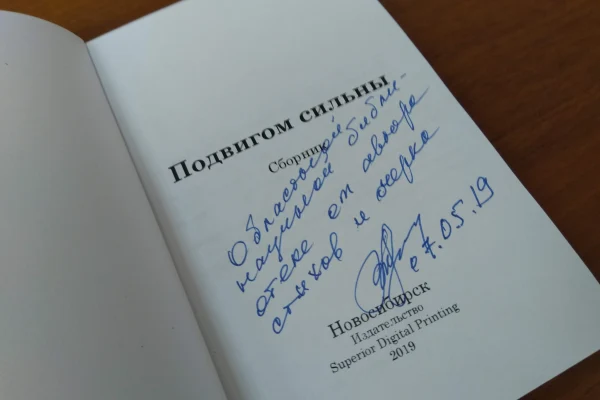 Подвигом сильны
Сборник
Областной
научной библи-
отеке от автора
стихов и очерка
07.05.19
Новосибирск
Издательство
Superior Digital Printing
2019